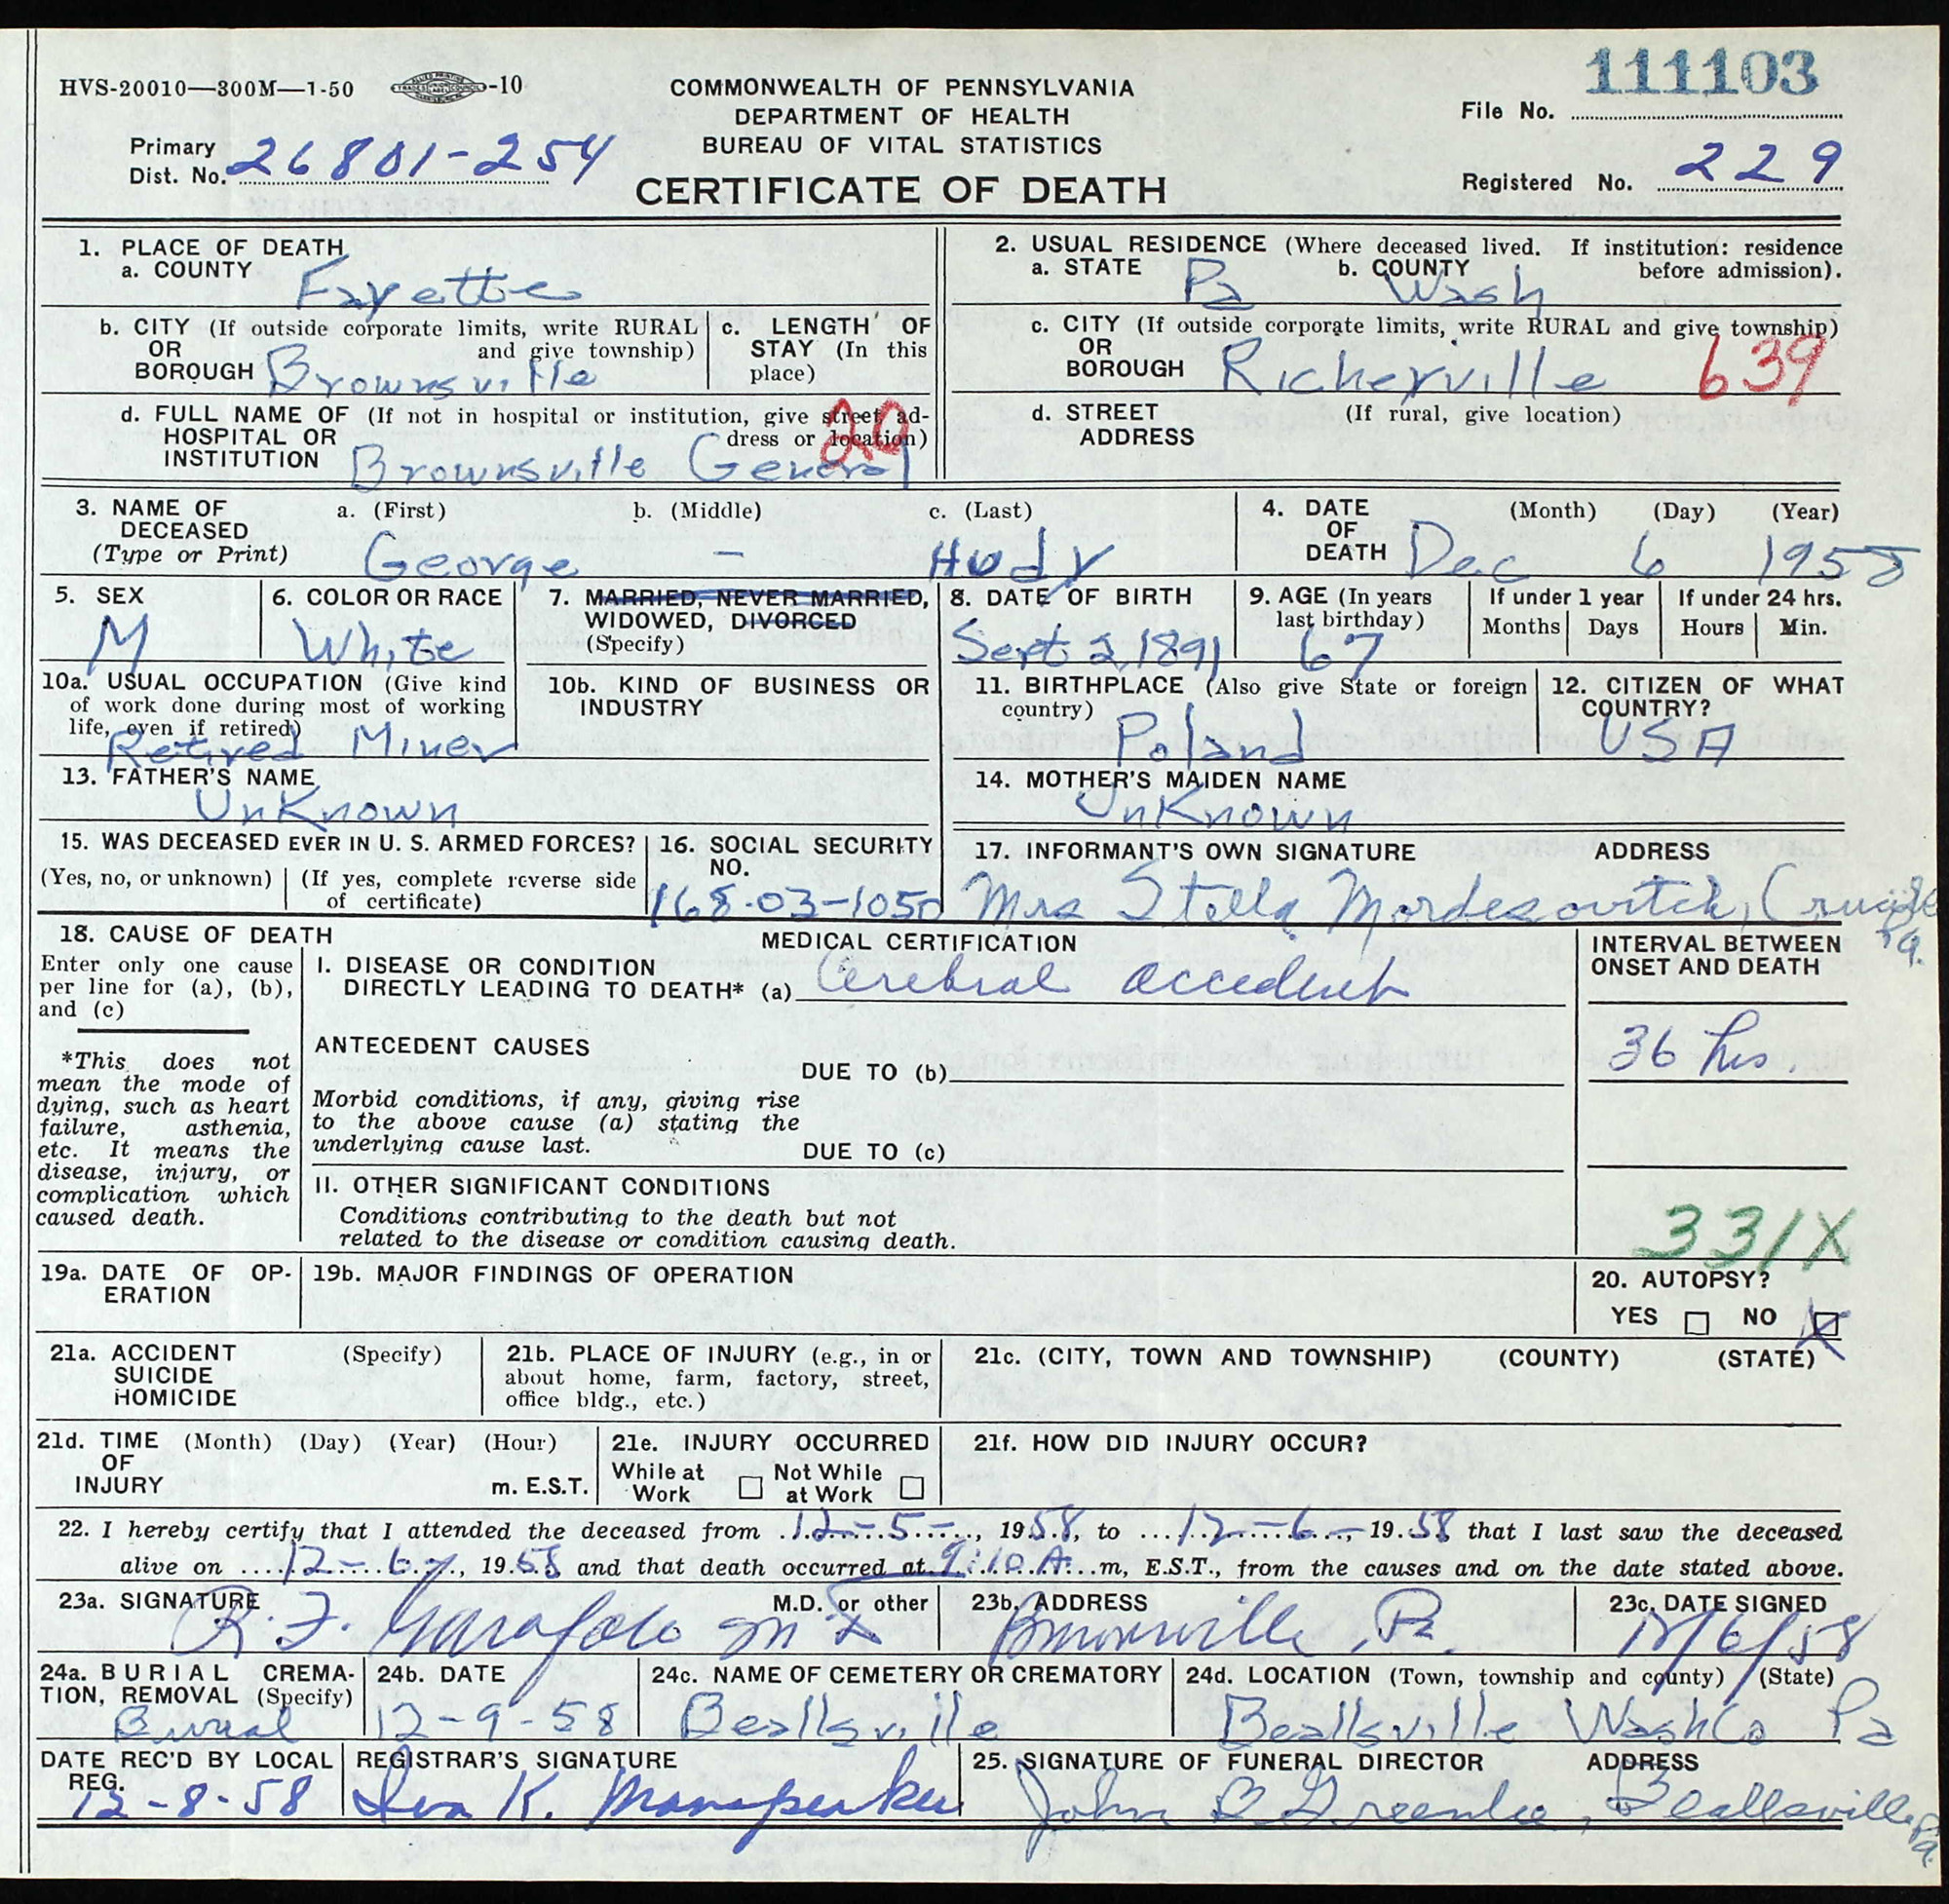 HVS-20010—300M—1-50 -10
COMMONWEALTH OF PENNSYLVANIA
DEPARTMENT OF HEALTH
BUREAU OF VITAL STATISTICS
CERTIFICATE OF DEATH
111103
File No.
Primary
Dist. No. 26801-254
Registered No. 229
1. PLACE OF DEATH
a. COUNTY Fayette
2. USUAL RESIDENCE (Where deceased lived. If institution: residence
a. STATE Pa b. COUNTY Wash before admission).
b. CITY (If outside corporate limits, write RURAL
OR and give township)
BOROUGH Brownsville
c. LENGTH OF
STAY (In this
place)
c. CITY (If outside corporate limits, write RURAL and give township)
OR
BOROUGH Richeyville 639
d. FULL NAME OF (If not in hospital or institution, give street ad-
HOSPITAL OR dress or location)
INSTITUTION Brownsville General
20
d. STREET (If rural, give location)
ADDRESS
3. NAME OF a. (First) b. (Middle) c. (Last)
DECEASED
(Type or Print) George — Hudy
4. DATE (Month) (Day) (Year)
OF
DEATH Dec 6 1958
5. SEX
M
6. COLOR OR RACE
White
7. MARRIED, NEVER MARRIED,
WIDOWED, DIVORCED
(Specify)
8. DATE OF BIRTH
Sept 2, 1891
9. AGE (In years
last birthday)
67
If under 1 year
Months Days
If under 24 hrs.
Hours Min.
10a. USUAL OCCUPATION (Give kind
of work done during most of working
life, even if retired)
Retired Miner
10b. KIND OF BUSINESS OR
INDUSTRY
11. BIRTHPLACE (Also give State or foreign
country)
Poland
12. CITIZEN OF WHAT
COUNTRY?
USA
13. FATHER'S NAME
UnKnown
14. MOTHER'S MAIDEN NAME
UnKnown
15. WAS DECEASED EVER IN U. S. ARMED FORCES?
(Yes, no, or unknown) (If yes, complete reverse side
of certificate)
16. SOCIAL SECURITY
NO.
168-03-1050
17. INFORMANT'S OWN SIGNATURE ADDRESS
Mrs Stella Mordesovitch, Pa.
18. CAUSE OF DEATH
Enter only one cause
per line for (a), (b),
and (c)
*This does not
mean the mode of
dying, such as heart
failure, asthenia,
etc. It means the
disease, injury, or
complication which
caused death.
MEDICAL CERTIFICATION
I. DISEASE OR CONDITION
DIRECTLY LEADING TO DEATH* (a) Cerebral accident
ANTECEDENT CAUSES
DUE TO (b)
Morbid conditions, if any, giving rise
to the above cause (a) stating the
underlying cause last.
DUE TO (c)
II. OTHER SIGNIFICANT CONDITIONS
Conditions contributing to the death but not
related to the disease or condition causing death.
INTERVAL BETWEEN
ONSET AND DEATH
36 hrs.
331X
19a. DATE OF OP-
ERATION
19b. MAJOR FINDINGS OF OPERATION
20. AUTOPSY?
YES NO X
21a. ACCIDENT (Specify)
SUICIDE
HOMICIDE
21b. PLACE OF INJURY (e.g., in or
about home, farm, factory, street,
office bldg., etc.)
21c. (CITY, TOWN AND TOWNSHIP) (COUNTY) (STATE)
21d. TIME (Month) (Day) (Year) (Hour)
OF
INJURY m. E.S.T.
21e. INJURY OCCURRED
While at Not While
Work at Work
21f. HOW DID INJURY OCCUR?
22. I hereby certify that I attended the deceased from 12-5-, 1958, to 12-6-, 1958 that I last saw the deceased
alive on 12-6-, 1958 and that death occurred at 9:10 A. m, E.S.T., from the causes and on the date stated above.
23a. SIGNATURE M.D. or other
R. F. Garafolo M D
23b. ADDRESS
Brownsville, Pa.
23c. DATE SIGNED
12/6/58
24a. BURIAL CREMA-
TION, REMOVAL (Specify)
Burial
24b. DATE
12-9-58
24c. NAME OF CEMETERY OR CREMATORY
Beallsville
24d. LOCATION (Town, township and county) (State)
Beallsville WashCo Pa
DATE REC'D BY LOCAL
REG.
12-8-58
REGISTRAR'S SIGNATURE
K.
25. SIGNATURE OF FUNERAL DIRECTOR ADDRESS
John B Greenlee, Beallsville, Pa.